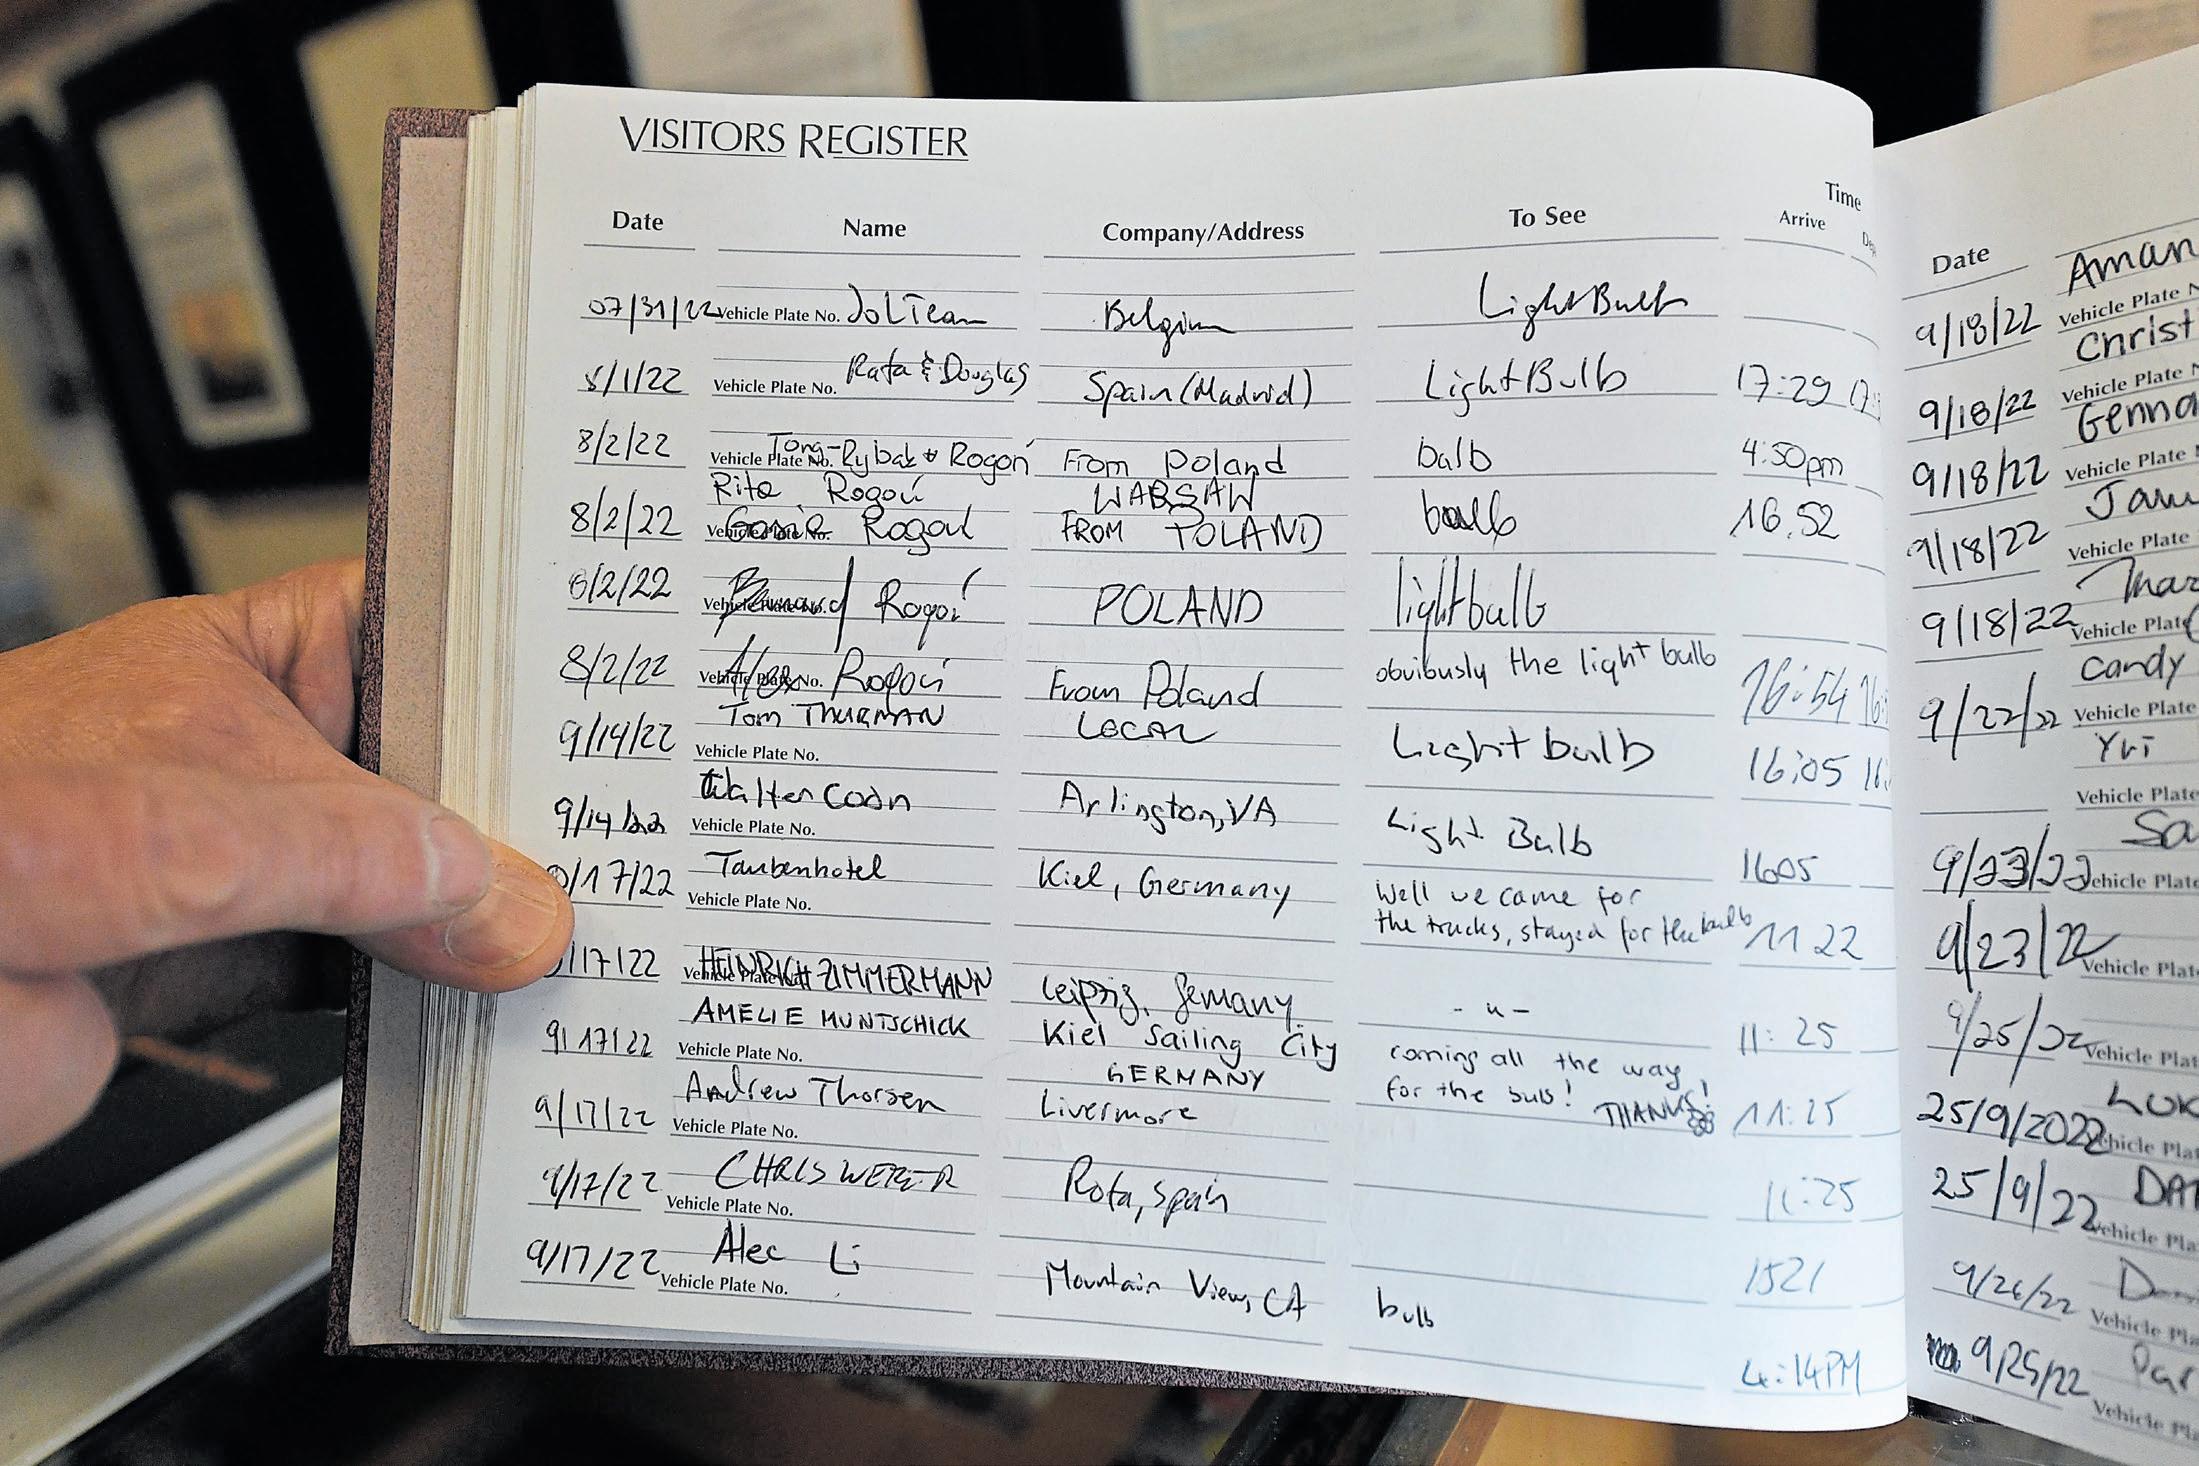 VISITORS REGISTER
Time
Date Name Company/Address To See Arrive
07/31/22 Vehicle Plate No. Belgium LightBulb
8/1/22 Vehicle Plate No. Rafa & Douglas Spain (Madrid) LightBulb 17:29
8/2/22 Vehicle Plate No. Rogoń From Poland balb 4:50pm
Rita Rogoń WARSAW
8/2/22 Vehicle Plate No. FROM POLAND bulb 16.52
8/2/22 Vehicle Plate No. Rogoń POLAND lightbulb
8/2/22 Vehicle Plate No. Alex Rogoń From Poland obviously the light bulb 16:54
Tom THURMAN LOCAL
9/14/22 Vehicle Plate No. Light bulb 16:05
Walter Coon Arlington, VA
9/14/22 Vehicle Plate No. Light Bulb 1605
Taubenhotel Kiel, Germany Well we came for
/17/22 Vehicle Plate No. the trucks, stayed for the bulb 11 22
/17/22 Vehicle Plate No. HEINRICH ZIMMERMANN Leipzig, Germany - " - 11:25
AMELIE MUNTSCHICK Kiel Sailing City
9/17/22 Vehicle Plate No. GERMANY coming all the way
for the bulb! THANKS! 11:25
Andrew Thorsen Livermore
9/17/22 Vehicle Plate No. 11:25
CHRIS WEBER Rota, Spain
9/17/22 Vehicle Plate No. 1521
Alec Li Mountain View, CA bulb
9/17/22 Vehicle Plate No. 4:14PM
Date
Aman
9/18/22 Vehicle Plate N
Christ
9/18/22 Vehicle Plate N
Genna
9/18/22 Vehicle Plate
9/18/22 Vehicle Plate
9/18/22 Vehicle Plate
Candy
9/22/22 Vehicle Plate
Yuri
Vehicle Plate
Sa
9/23/22 Vehicle Plate
9/23/22 Vehicle Plat
9/25/22 Vehicle Plat
25/9/2022 Vehicle Plat
25/9/22 Vehicle Pla
9/26/22 Vehicle Pla
9/25/22 Vehicle Pla